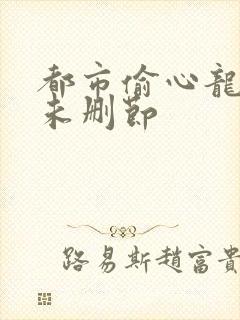 都市偷心龍
未删節
路易斯趙富貴